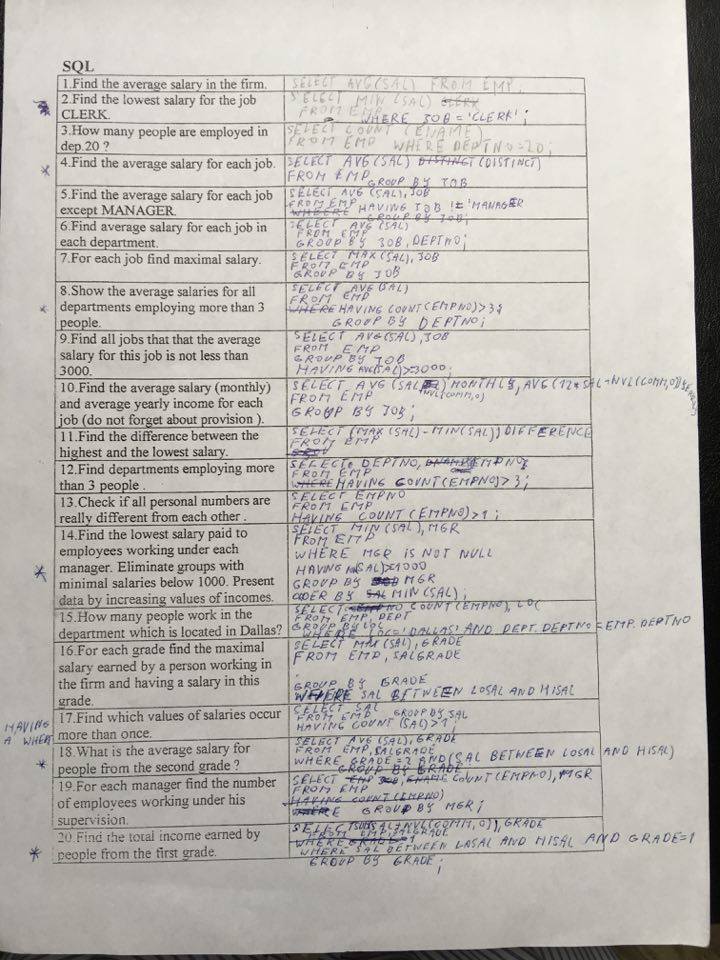 SQL
1.Find the average salary in the firm.
SELECT AVG(SAL) FROM EMP;
2.Find the lowest salary for the job
CLERK.
SELECT MIN (SAL)
FROM EMP WHERE JOB = 'CLERK' ;
3.How many people are employed in
dep.20 ?
SELECT COUNT (ENAME)
FROM EMP WHERE DEPTNO=20;
4.Find the average salary for each job.
SELECT AVG(SAL) DISTINCT (DISTINCT)
FROM EMP
GROUP BY JOB
5.Find the average salary for each job
except MANAGER.
SELECT AVG (SAL), JOB
FROM EMP
WHERE HAVING JOB != 'MANAGER
GROUP BY JOB;
6.Find average salary for each job in
each department.
SELECT AVG (SAL)
FROM EMP
GROUP BY JOB, DEPTNO;
7.For each job find maximal salary.
SELECT MAX(SAL), JOB
FROM EMP
GROUP BY JOB
8.Show the average salaries for all
departments employing more than 3
people.
SELECT AVG(SAL)
FROM EMP
WHERE HAVING COUNT(EMPNO)>3
GROUP BY DEPTNO;
9.Find all jobs that that the average
salary for this job is not less than
3000.
SELECT AVG(SAL), JOB
FROM EMP
GROUP BY JOB
HAVING AVG(SAL)>3000;
10.Find the average salary (monthly)
and average yearly income for each
job (do not forget about provision ).
SELECT AVG (SAL) MONTHLY, AVG (12*SAL+NVL(COMM,0))
+NVL(COMM,0)
FROM EMP
GROUP BY JOB;
11.Find the difference between the
highest and the lowest salary.
SELECT (MAX (SAL) - MIN(SAL)) DIFFERENCE
FROM EMP
12.Find departments employing more
than 3 people .
SELECT DEPTNO, EMPNO
FROM EMP
WHERE HAVING COUNT(EMPNO)>3;
13.Check if all personal numbers are
really different from each other .
SELECT EMPNO
FROM EMP
HAVING COUNT (EMPNO)>1 ;
14.Find the lowest salary paid to
employees working under each
manager. Eliminate groups with
minimal salaries below 1000. Present
data by increasing values of incomes.
SELECT MIN (SAL), MGR
FROM EMP
WHERE MGR IS NOT NULL
HAVING MIN(SAL)>1000
GROUP BY MGR
ORDER BY SAL MIN(SAL);
15.How many people work in the
department which is located in Dallas?
SELECT COUNT(EMPNO), LOC
FROM EMP, DEPT
GROUP BY LOC
WHERE LOC='DALLAS' AND DEPT.DEPTNO=EMP.DEPTNO
16.For each grade find the maximal
salary earned by a person working in
the firm and having a salary in this
grade.
SELECT MAX (SAL), GRADE
FROM EMP, SALGRADE
GROUP BY GRADE
WHERE SAL BETWEEN LOSAL AND HISAL
17.Find which values of salaries occur
more than once.
SELECT SAL
FROM EMP GROUP BY SAL
HAVING COUNT (SAL)>1;
HAVING
A WHERE
18.What is the average salary for
people from the second grade ?
SELECT AVG (SAL), GRADE
FROM EMP, SALGRADE
WHERE GRADE=2 AND (SAL BETWEEN LOSAL AND HISAL)
GROUP BY GRADE
19.For each manager find the number
of employees working under his
supervision.
SELECT EMP JOB, ENAME COUNT(EMPNO), MGR
FROM EMP
HAVING COUNT(EMPNO)
WHERE GROUP BY MGR;
20.Find the total income earned by
people from the first grade.
SELECT SUM(SAL+NVL(COMM,0)), GRADE
FROM EMP, SALGRADE
WHERE GRADE=1
WHERE SAL BETWEEN LASAL AND HISAL AND GRADE=1
GROUP BY GRADE;